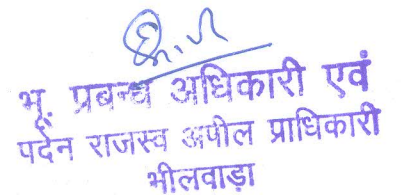 भू. प्रबन्ध अधिकारी एवं
पर्देन राजस्व अपील प्राधिकारी
भीलवाड़ा